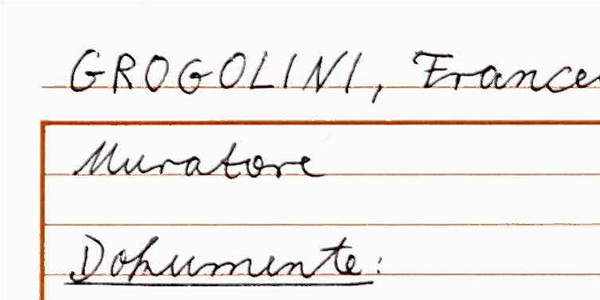 GROGOLINI, Frances
Muratore
Dokumente: